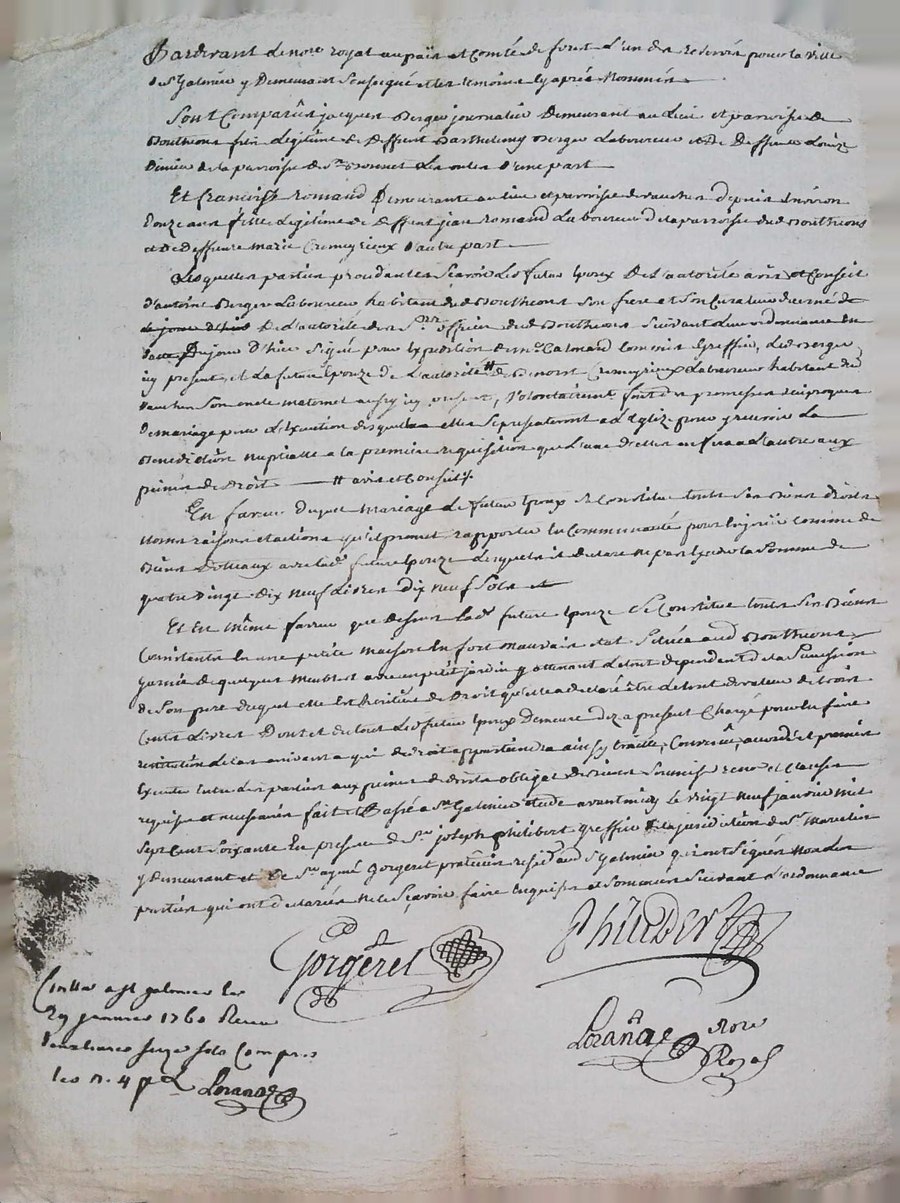 Pardevant le nore royal au païs et Comté de forest l'un des reservés pour la ville
de St Galmier y Demeurant soussigné et les temoins cy aprés Nommés
Sont Comparûs jacques Berger journalier Demeurant au Lieu et parroisse de
Boutheon fils Legitime de Deffunt Barthelemy Berger Laboureur et de Deffunte Louize
Dimier de la parroisse de St Bonnet Les oules d'une part
Et françoise romand Demeurante au lieu et parroisse de veauche Depuis Environ
Onze ans fille Legitime de Deffunt jean romand Laboureur de la parroisse dud Bouthéons
et de Deffunte marie Cremeyrieux D'autre part
Lesquelles parties procedantes sçavoir Led futur Epoux De L'autorité avis et Conseil
d'antoine Berger Laboureur habitant dud Bouthéons Son frere et Son Curateur decerné de
De L'autorité des Srs officiers dud Bouthéons Suivant Leur ordonnance en
Datte Du jour D'hier Signé pour Expedition Commis Greffier, Led Berger
icy present, et La future Epouze De L'autorité # de Benoit Cremeyrieux Laboureur habitant dud
veauche Son oncle maternel aussy icy present, volontairement font Les promesses reciproques
De mariage pour L'Execution desquelles elles se presenteront a L'Eglize pour y recevoir La
Benediction nuptialle a la premiere requisition que L'une D'elles en fera a L'autre aux
peines de Droit # avis et Conseil
En faveur Duquel mariage Le futur Epoux se Constitue touts Ses Biens Droits
noms raisons et actions qu'il promet rapporter en Communauté pour En jouir comme de
Biens Dotteaux avec lad future Epouze Lesquels il declare ne pas Exceder la Somme de
quatre vingt Dix neuf Livres Dix neuf Sols
Et En même faveur que Dessus Lad future Epouze Se Constitue touts Ses Biens
Consistants En une petite maison En fort mauvais etat Scituée aud Bouthéons
Garnie de quelques meubles avec un petit jardin y attenant Le tout dependant de la Succession
de Son pere duquel elle Est heritiere de Droit qu'elle a declaré être Le tout de valeur de trois
Cents Livres Dont et du tout Led futur Epoux Demeure Dez a present Chargé pour En faire
restitution Le Cas arrivant a qui de droit appartiendra ainsy traitté, Convenu, accordé et promis
Executer Entre Les parties aux peines de droit obligat de biens Soumiss renon et Clauses
requises et necessaires fait et Passé a St Galmier etude avant midy Le vingt neuf janvier mil
Sept Cent Soixante En presence de Sr joseph philibert greffier de la jurisdiction de St Marcelin
y demeurant et de Sr aymé Gorgeret praticien resid aud St Galmier qui ont Signés non les
parties qui ont declarées ne le Sçavoir faire Enquises et Sommées Suivant L'ordonnance
Gorgeret
Philibert
Loranà nore
Royal
Conllé a St galmier le
29 janvier 1760 Receu
seize sols Compris
les n. 4 pd Loranà